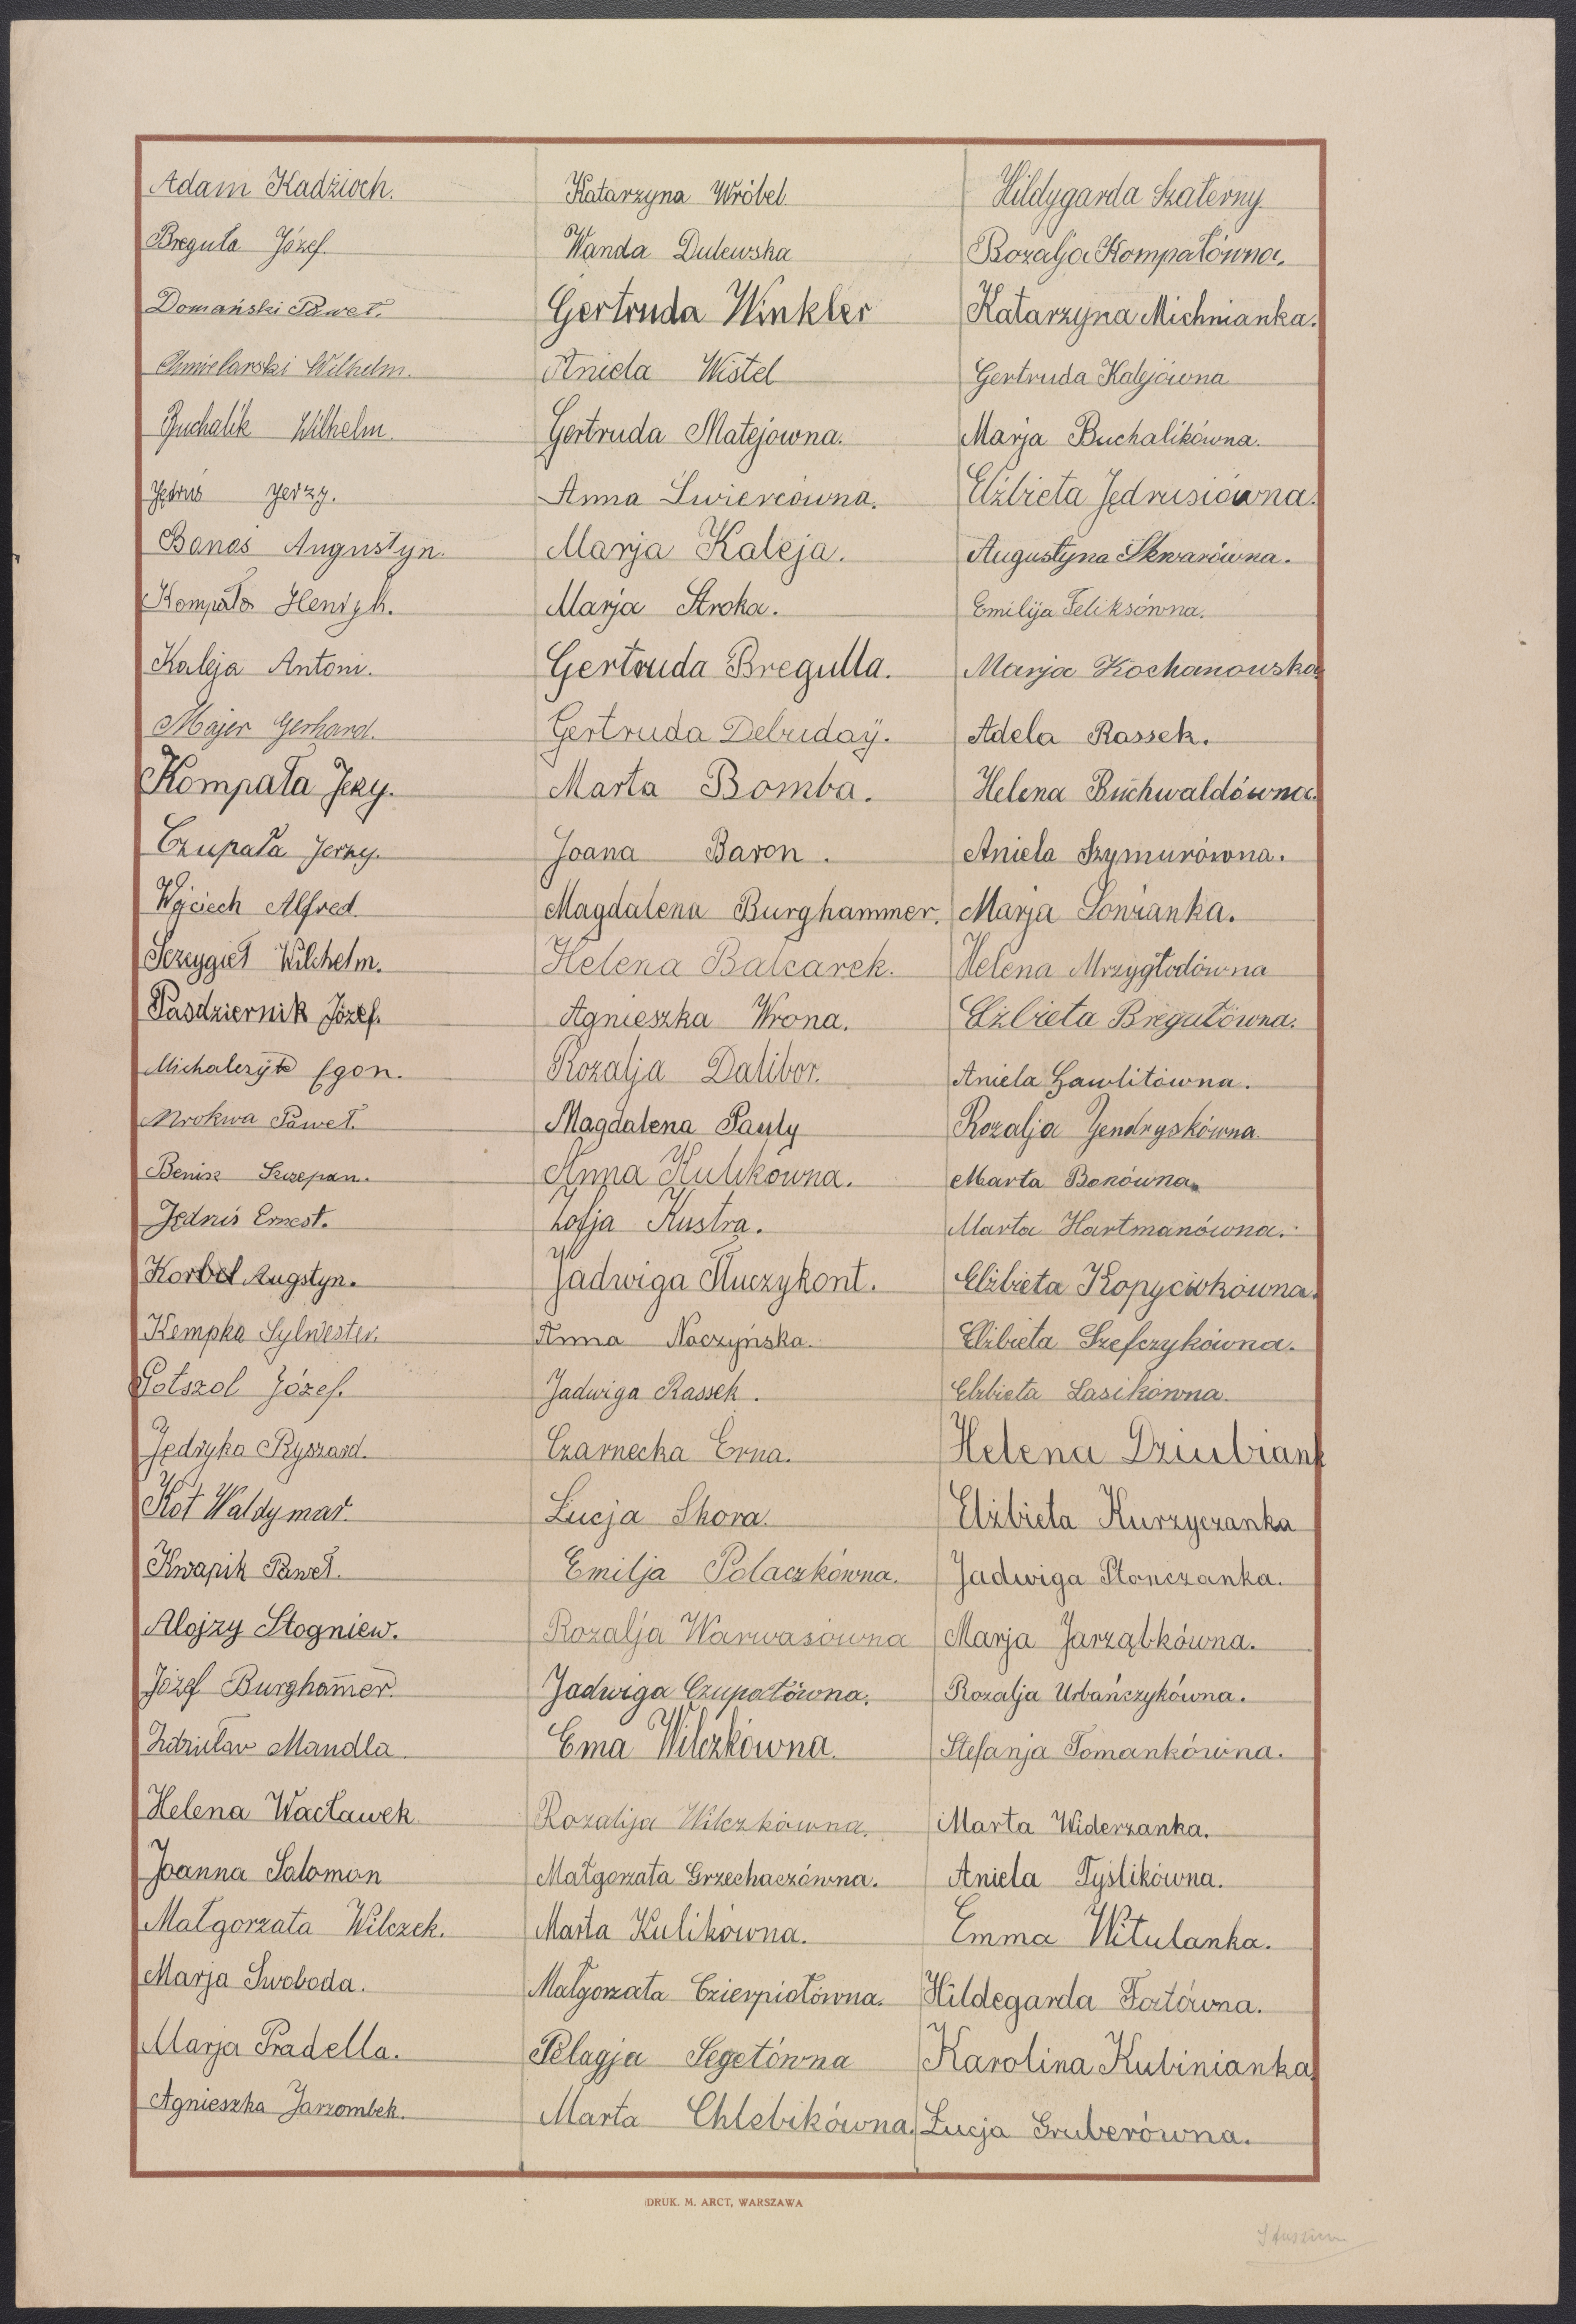 Adam Kadzioch.
Breguła Józef.
Domański Paweł.
Chmielarski Wilhelm.
Buchalik Wilhelm.
Jędruś Jerzy.
Banaś Augustyn.
Kompała Henryk.
Kaleja Antoni.
Majer Gerhard.
Kompała Jerzy.
Czupała Jerzy.
Wojciech Alfred.
Szczygieł Wilchelm.
Pasdziernik Józef.
Michalczyk Egon.
Mrokwa Paweł.
Benisz Szczepan.
Jędruś Ernest.
Korbel Augstyn.
Kempka Sylwester.
Potszol Józef.
Jędryka Ryszard.
Kot Waldymar.
Kwapik Paweł.
Alojzy Stogniew.
Józef Burghamer.
Zdzisław Mandla.
Helena Wacławek
Joanna Saloman
Małgorzata Wilczek.
Marja Swoboda.
Marja Pradella.
Agnieszka Jarzombek.
Katarzyna Wróbel
Wanda Dulewska
Gertruda Winkler
Aniela Wistel
Gertruda Matejowna.
Anna Świercówna.
Marja Kaleja.
Marja Stroka.
Gertruda Bregulla.
Gertruda Debudaÿ.
Marta Bomba.
Joana Baron.
Magdalena Burghammer.
Helena Balcarek.
Agnieszka Wrona.
Rozalja Dalibor.
Magdalena Pauly
Anna Kulikówna.
Zofja Kustra.
Jadwiga Tłuczykont.
Anna Naczyńska.
Jadwiga Rassek.
Czarnecka Erna.
Łucja Skora.
Emilja Polaczkówna.
Rozalja Warwasówna
Jadwiga Czupałówna.
Ema Wilczkówna.
Rozalija Wilczkówna.
Małgorzata Grzechaczówna.
Marta Kulikówna.
Małgorzata Czierpiołówna.
Pelagja Segetówna
Marta Chlebikówna.
Hildygarda Szaterny.
Rozalja Kompałówna.
Katarzyna Michnianka.
Gertruda Kalejówna
Marja Buchalikówna.
Elżbieta Jędrusiówna.
Augustyna Skwarówna.
Emilija Feliksówna.
Marja Kochanowska
Adela Rassek.
Helena Buchwaldówna.
Aniela Szymurówna.
Marja Sowianka.
Helena Mrzygłodówna
Elżbieta Bregułówna.
Aniela Gawlitówna.
Rozalja Jendryskówna.
Marta Bonówna.
Marta Hartmanówna.
Elżbieta Kopyciokówna.
Elżbieta Szefczykówna.
Elżbieta Lasikówna.
Helena Dziubiank
Elżbieta Kurzyczanka
Jadwiga Płonczanka.
Marja Jarząbkówna.
Rozalja Urbańczykówna.
Stefanja Tomankówna.
Marta Widerzanka.
Aniela Tyślikówna.
Emma Witulanka.
Hildegarda Fortówna.
Karolina Kubinianka
Łucja Gruberówna.
DRUK. M. ARCT, WARSZAWA